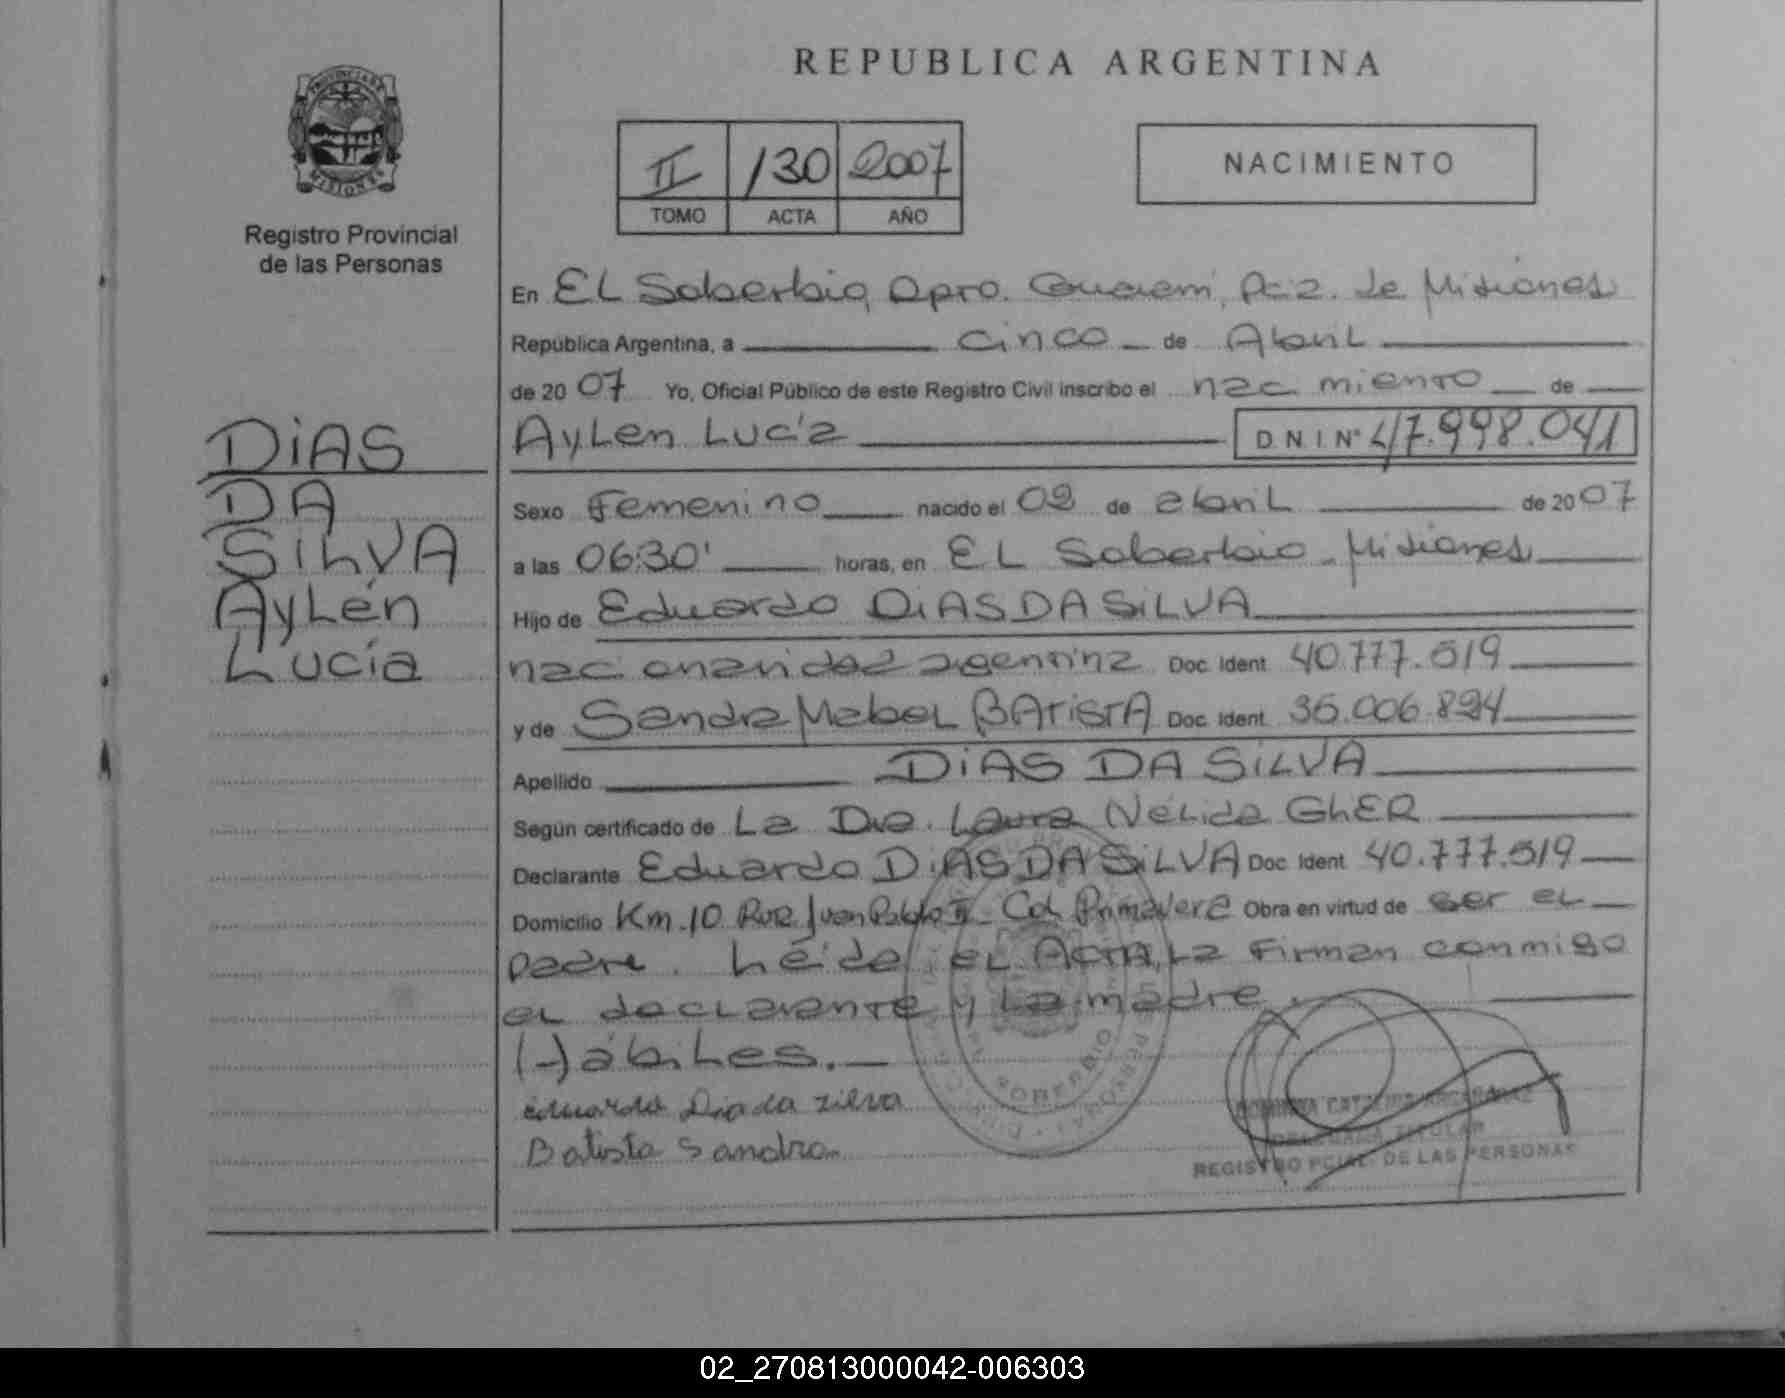 REPUBLICA ARGENTINA
PROVINCIA DE MISIONES
Registro Provincial
de las Personas
II 130 2007
TOMO ACTA AÑO
NACIMIENTO
En EL Soberbio, Dpto. Guaraní, Pcia. de Misiones
República Argentina, a cinco de Abril
de 2007 Yo, Oficial Público de este Registro Civil inscribo el nacimiento de
Aylen Lucía D.N.I. N° 47.998.041
DiAS
DA
SiLVA
Aylén
Lucía
Sexo Femenino nacido el 02 de abril de 2007
a las 06:30' horas, en EL Soberbio - Misiones
Hijo de Eduardo DiAS DA SiLVA
nacionalidad argentina Doc. Ident. 40.777.519
y de Sandra Mabel BATisTA Doc. Ident. 36.006.894
Apellido DiAS DA SiLVA
Según certificado de La Dra. Laura Nélida GhER
Declarante Eduardo DiAS DA SiLVA Doc. Ident. 40.777.519
Domicilio Km. 10 Ruta Juan Pablo II - Col. Primavera Obra en virtud de ser el
padre. Léida el Acta, la Firman conmigo
el declarante y la madre.
(-) ábiles.
eduardo Dia da zilva
Batista Sandra
DELEGADA TITULAR
REGISTRO PCIAL. DE LAS PERSONAS
SOBERBIO
02_270813000042-006303